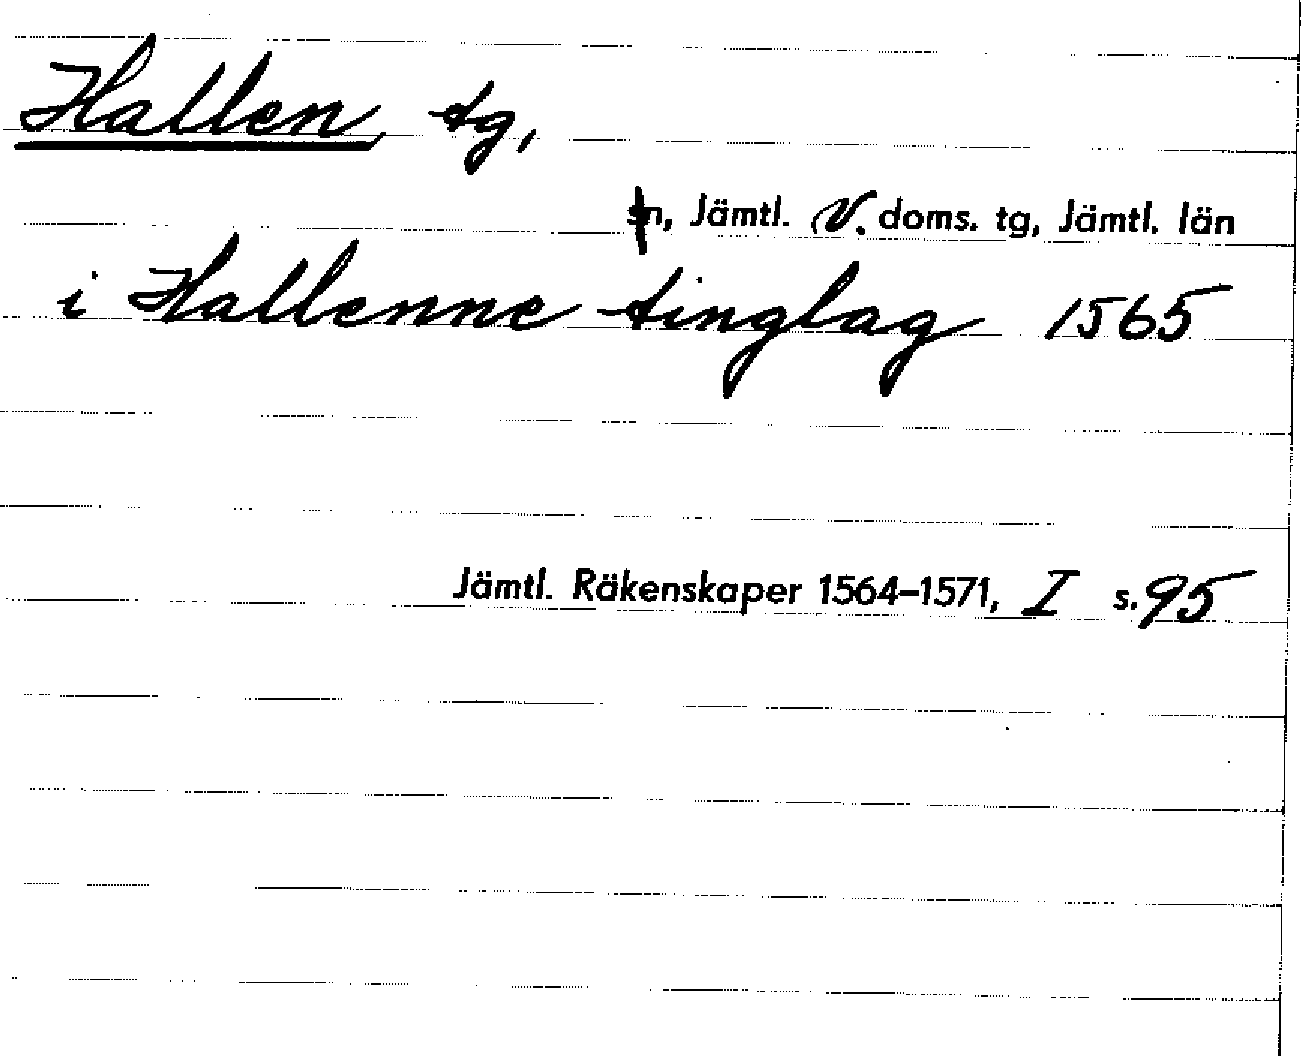 Hallen tg,
sn, Jämtl. V. doms. tg, Jämtl. län
i Hallenne tinglag 1565
Jämtl. Räkenskaper 1564–1571, I s. 95